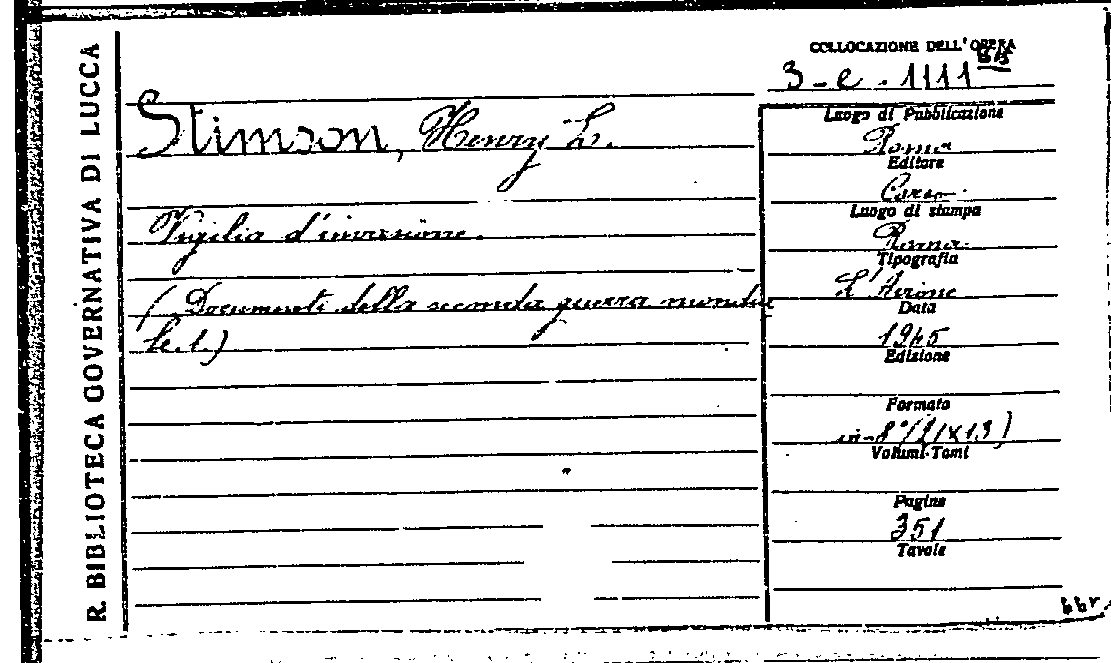 R. BIBLIOTECA GOVERNATIVA DI LUCCA
COLLOCAZIONE DELL'OPERA
3-e.1111 bis
Stimson, Henry L.
Vigilia d'invasione.
(Documenti della seconda guerra mondia
le.1.)
Luogo di Pubblicazione
Roma
Editore
Corso.
Luogo di stampa
Roma.
Tipografia
L'Airone
Data
1945
Edizione
Formato
in-8°(21X13)
Volumi-Tomi
Pagine
351
Tavole